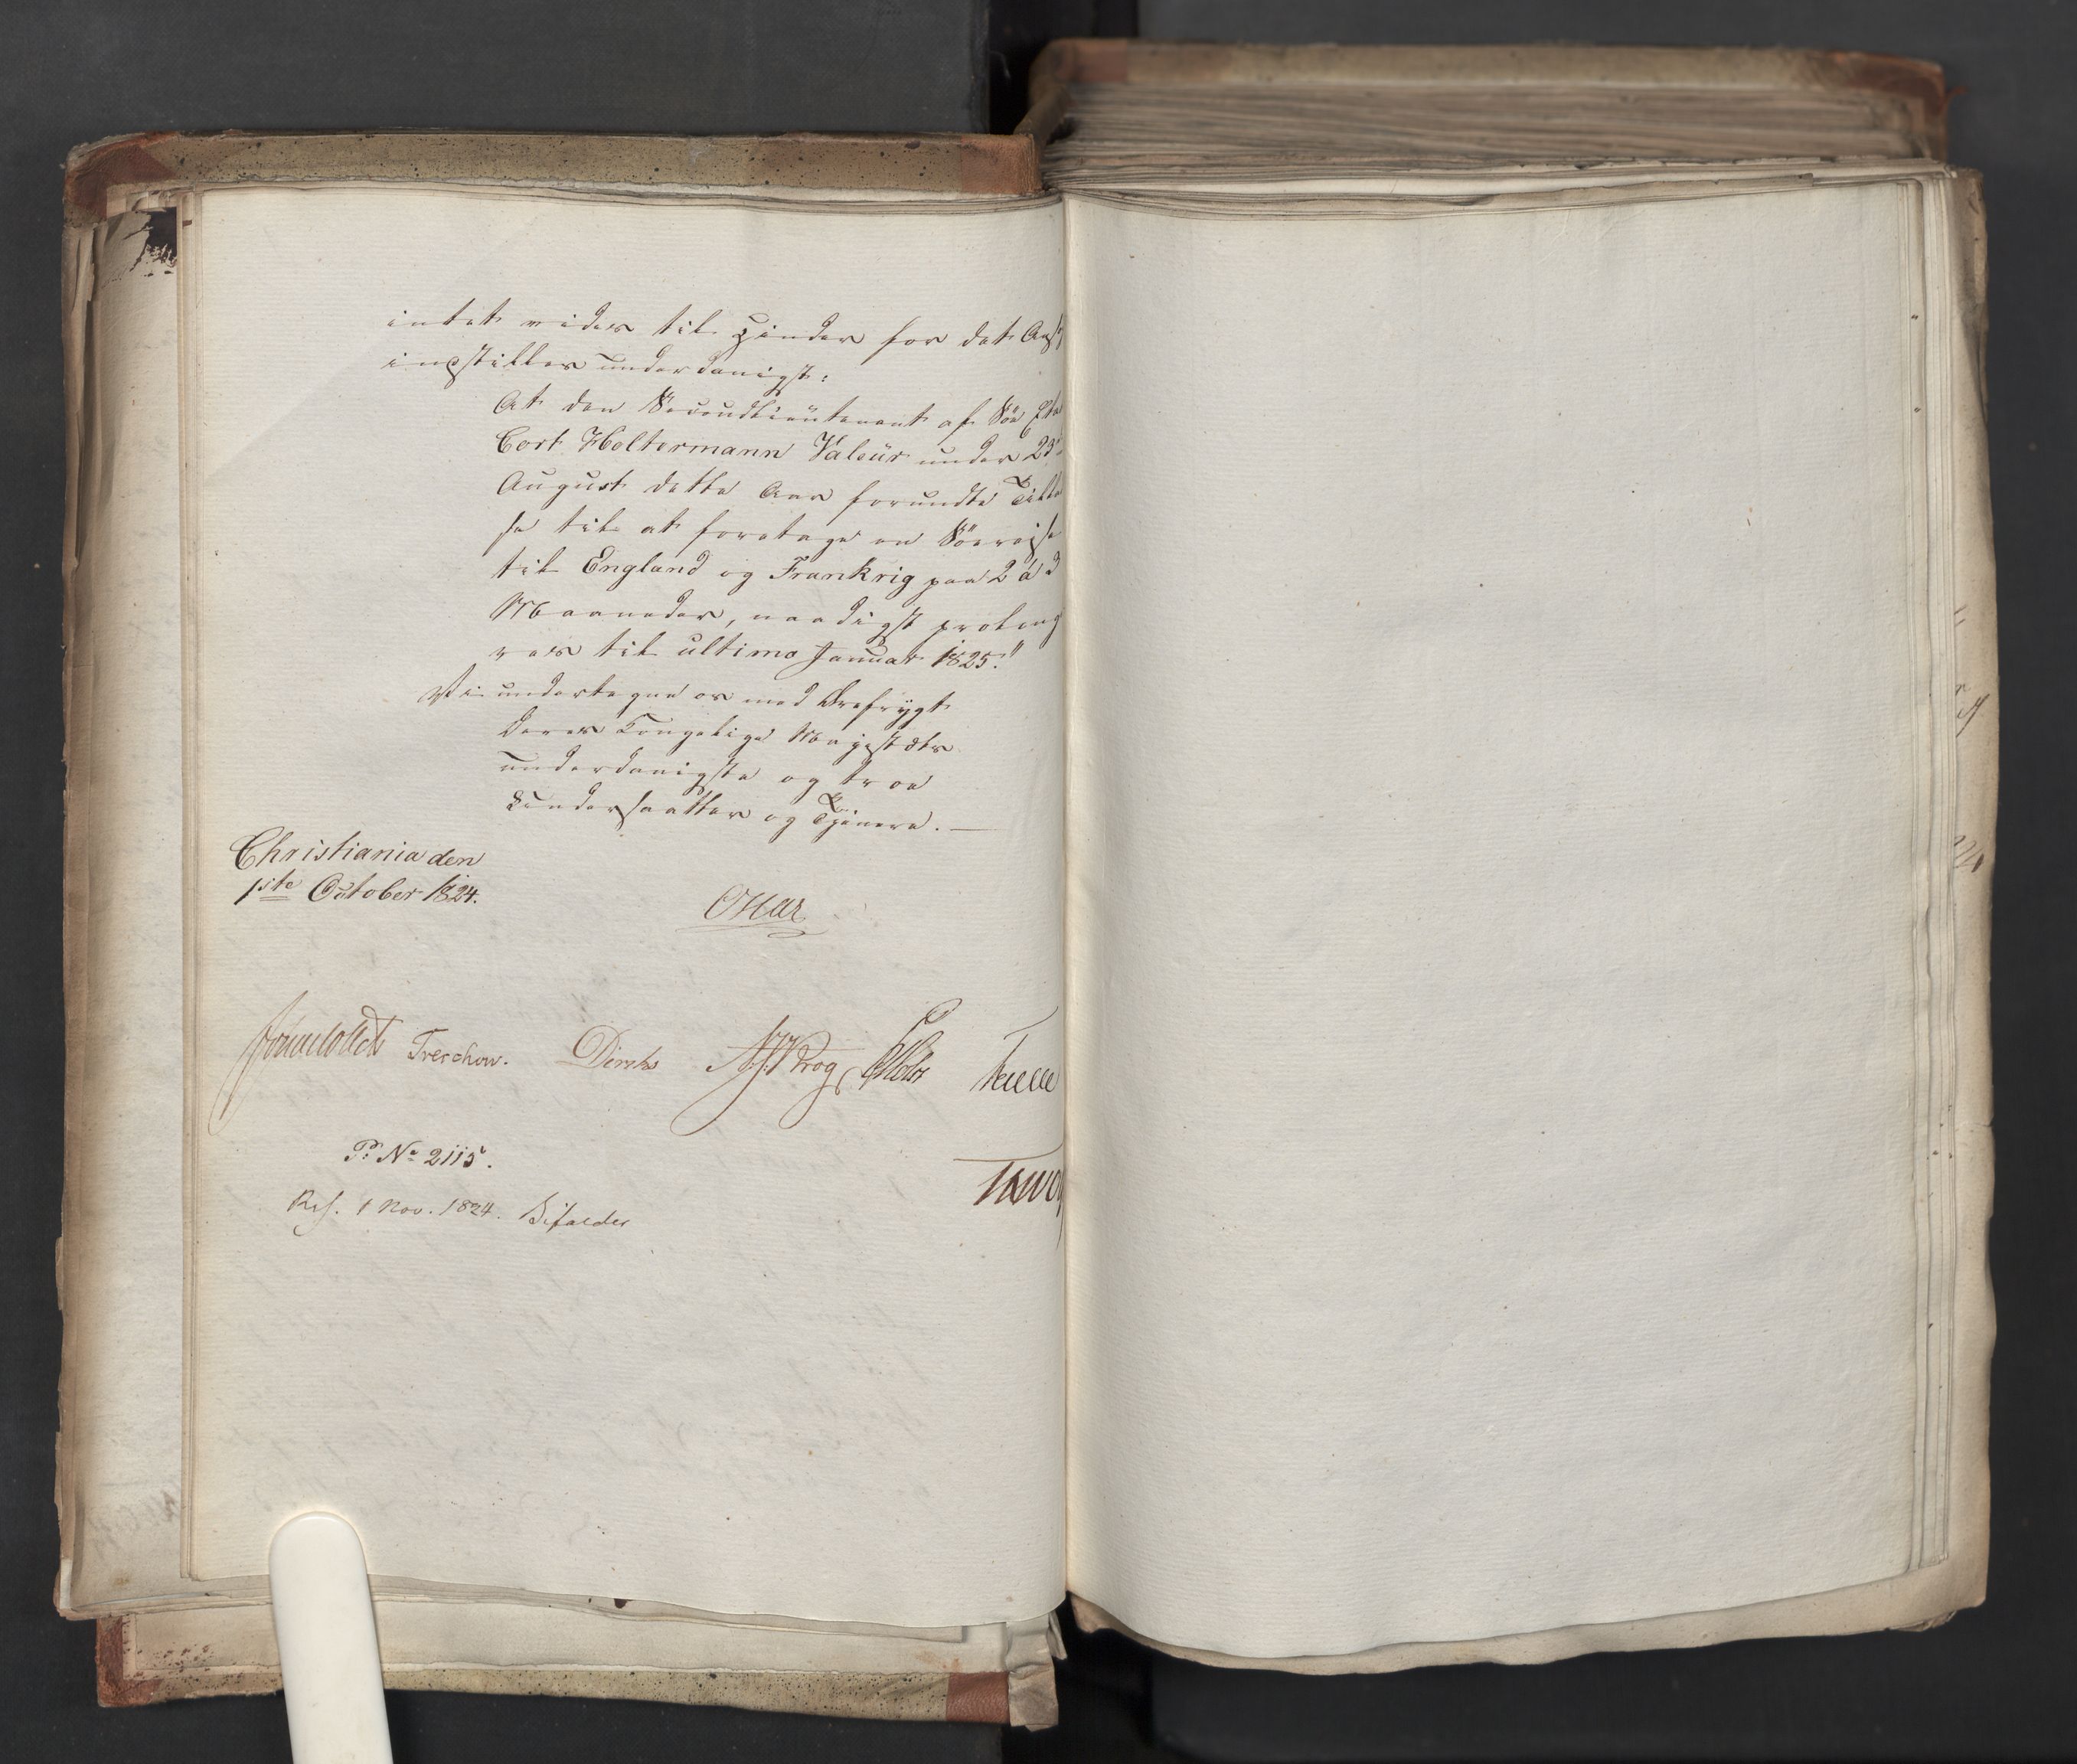 intet videre til Hinder for det Ans
indstilles underdanigst:
At den Secondlieutenant af Söe Eta
Cort Holtermann Valeür under 23
August dette Aar forundte Tilla
se til at foretage en Söereise
til England og Frankrig paa 2 á 3
Maaneder, naadigst proleng
res til ultimo Januar 1825."
Vi undertegne os med Ærefrygt
Deres Kongelige Majestæts
underdanigste og troe
Undersaatter og Tjenere. —
Christiania den
1ste October 1824.
Sommerhielm Treschow. Diriks Krog Motz
P: No 2115.
Res. 1 Nov. 1824. Bifaldes